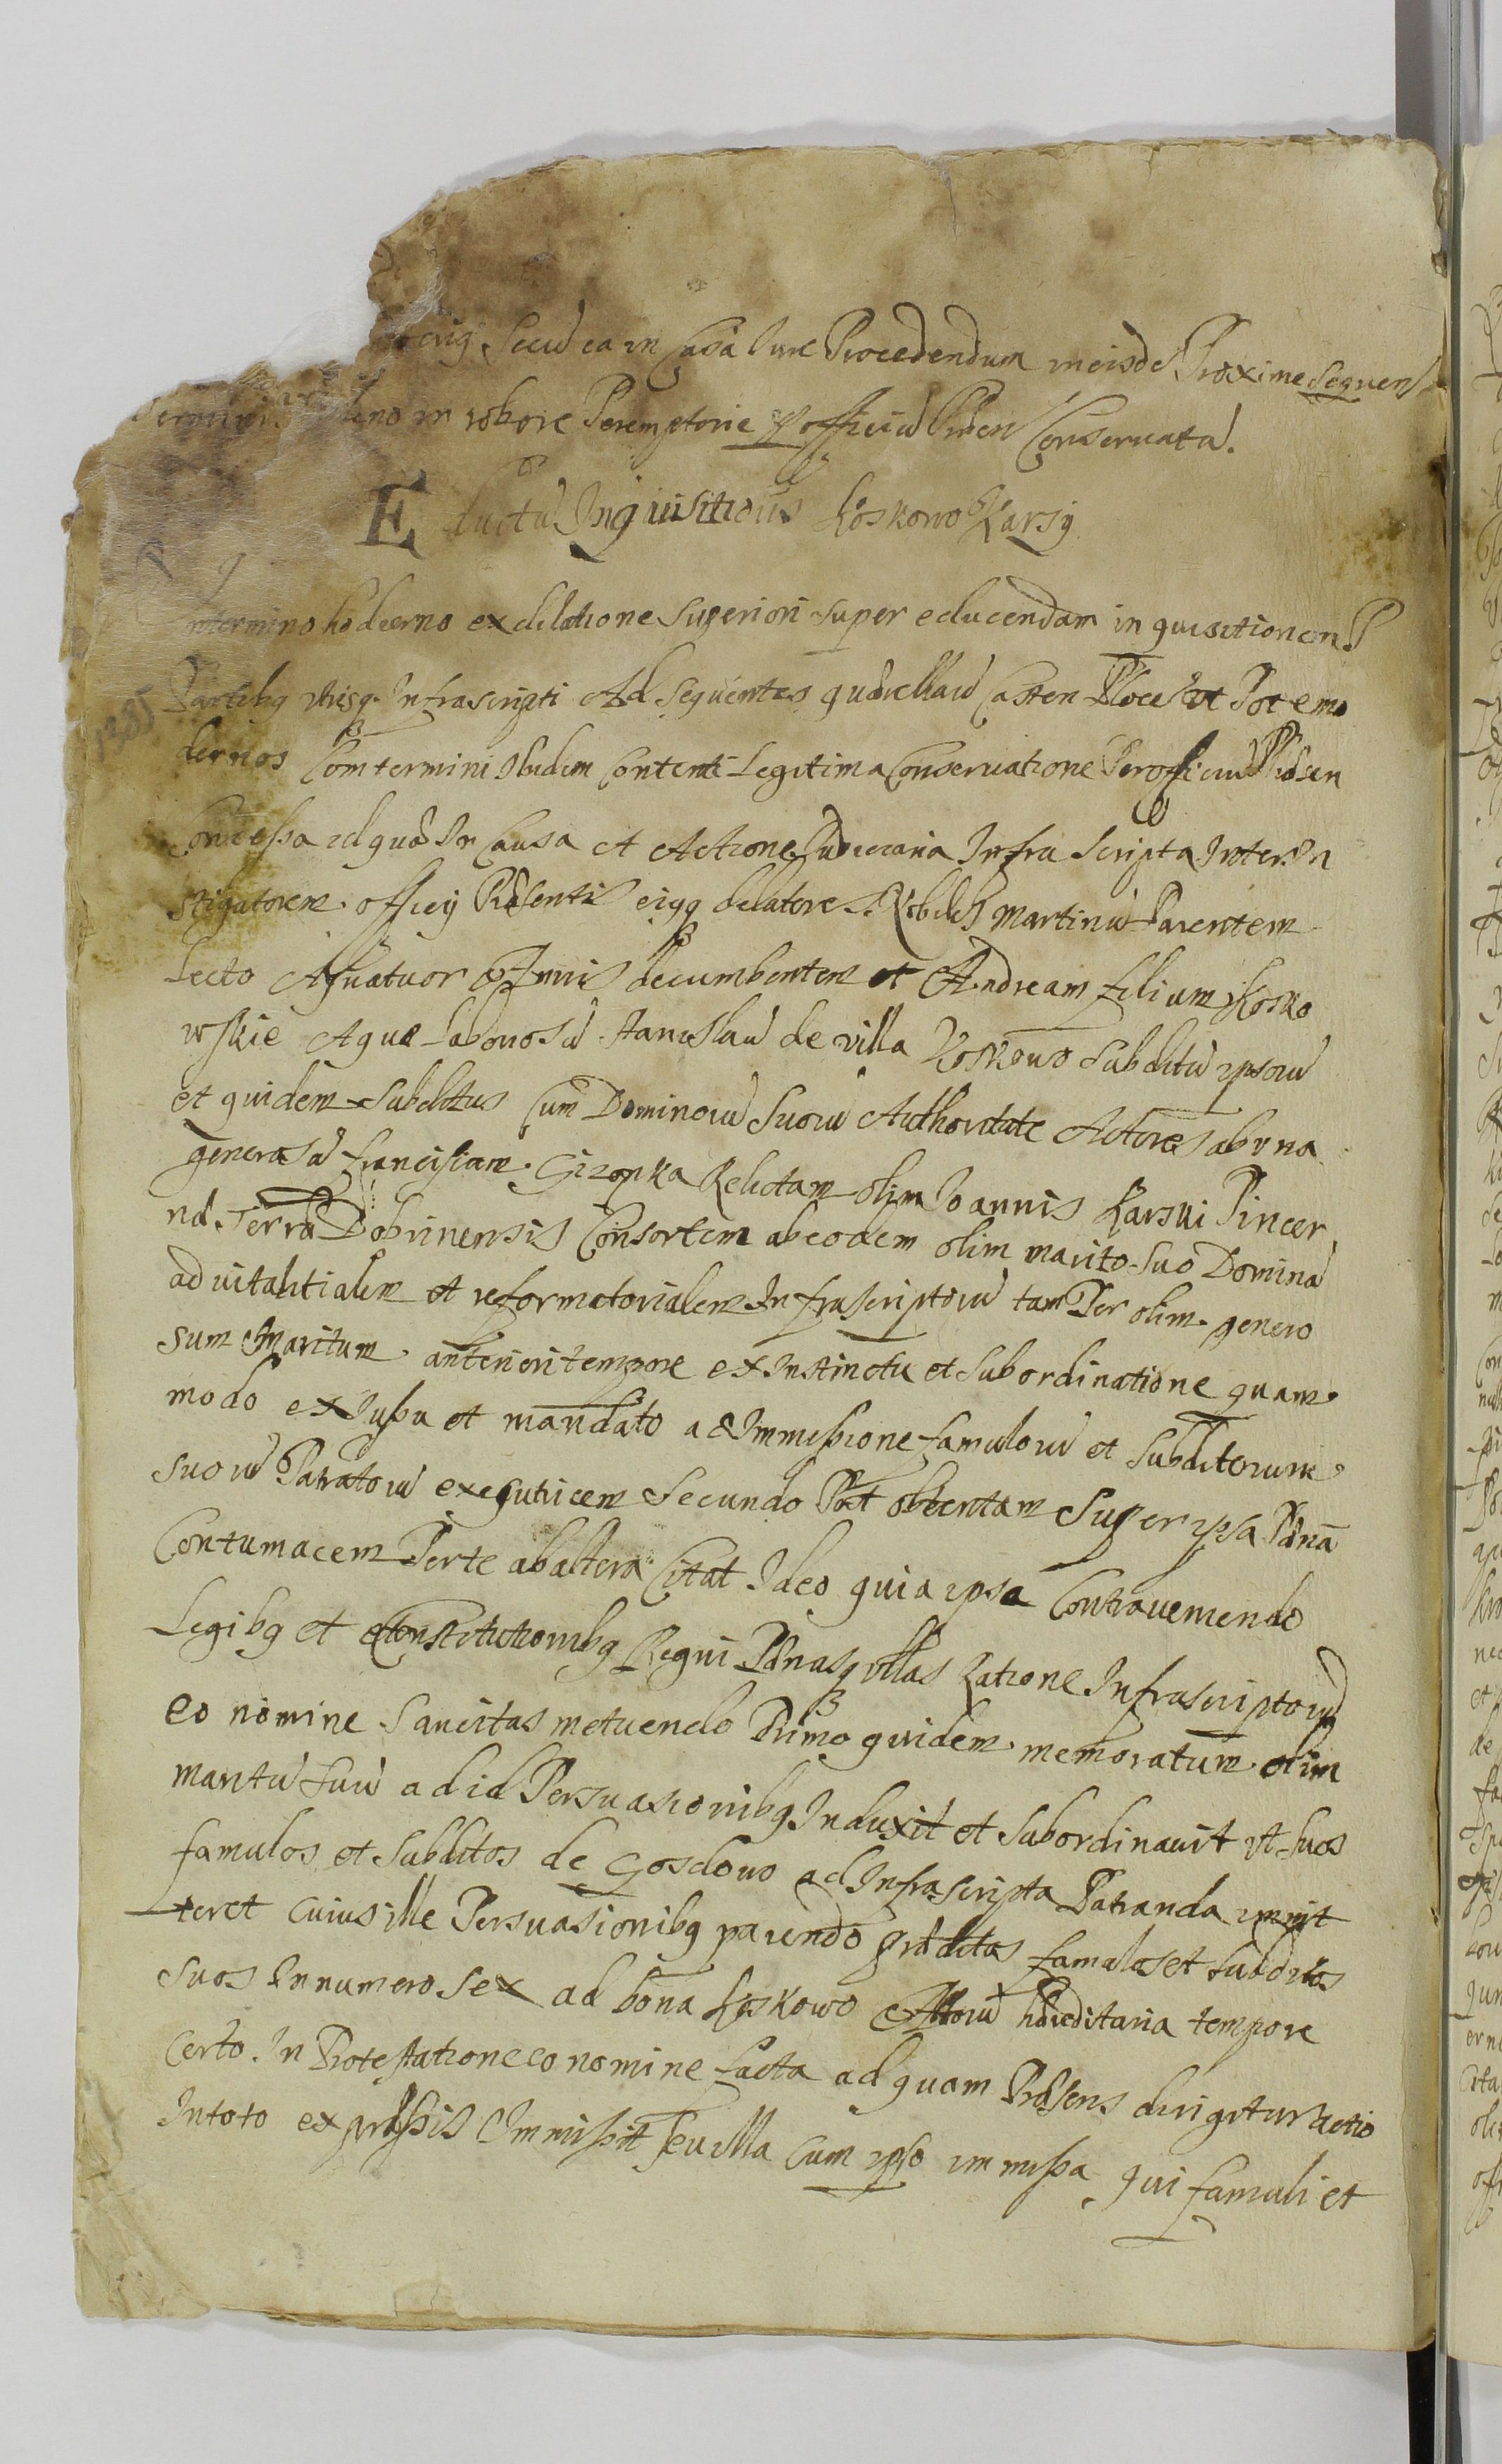 Secud ea in Causa Iure Procedendum in eisde Proxime Sequen
termini in robore Peremptorie P officiu Pnsen Conseruata.
Eductu Inquisitionis Koskowo Karsy
In termino hodierno ex dilatione Superiori super educendam inquisitionem P
Partibq utrisq Infrascripti Ad Sequentes quærellaru Casten Ploce et Pot emo
dernos Com termini Ibidem Contenti Legitima Conseruatione Per officiu Pnsen
Concessa idquæ In Causa et Actione Infra Scripta Inter In
stigatorem officij Præsentis eiqq delatores Nobiles Martinu Parentem
Lecto Affixatuor Annis decumbentem et Andream filium Kosko
wskie Aque Laboriosu Stanislau de villa Koskowo Subditu ipsoru
et quidem Subditus Cum Dominoru Suoru Authoritate Actores ab una
generosa Franciscam Gizonka Relictam olim Ioannis Karski Pincer
næ Terræ Dobrinensis Consortem ab eodem olim marito suo Domina
aduitalitialem et reformatorialem Infrascriptoru tam Per olim genero
sum Maritum anteriori tempore ex Instinctu et Subordinatione quam
modo ex Iussu et mandato ac Immissione famuloru et Subditorum
suoru Patratoru exequtricem Secundo Post obtentam Super ipsa Pœna
Contumacem Parte ab altera Citat Ideo quia ipsa Contraueniendo
Legibq et Constitutionibq Regni Pœnasq illas Ratione Infrascriptoru
eo nomine Sancitas metuendo Primo quidem memoratum olim
maritu suu ad id Persuasionibq Induxit et Subordinauit ut suos
famulos et Subditos de Gosdowo ad Infrascripta Patranda immit
teret cuius ille Persuasionibq parendo prædictos famulos et subditos
suos In numero sex ad bona Koskowo Actoru hæreditaria tempore
Certo In Protestatione eo nomine facta ad quam Præsens dirigitur actio
In toto expressis Immissit seu illa Cum ipso immissa qui famuli et
1385